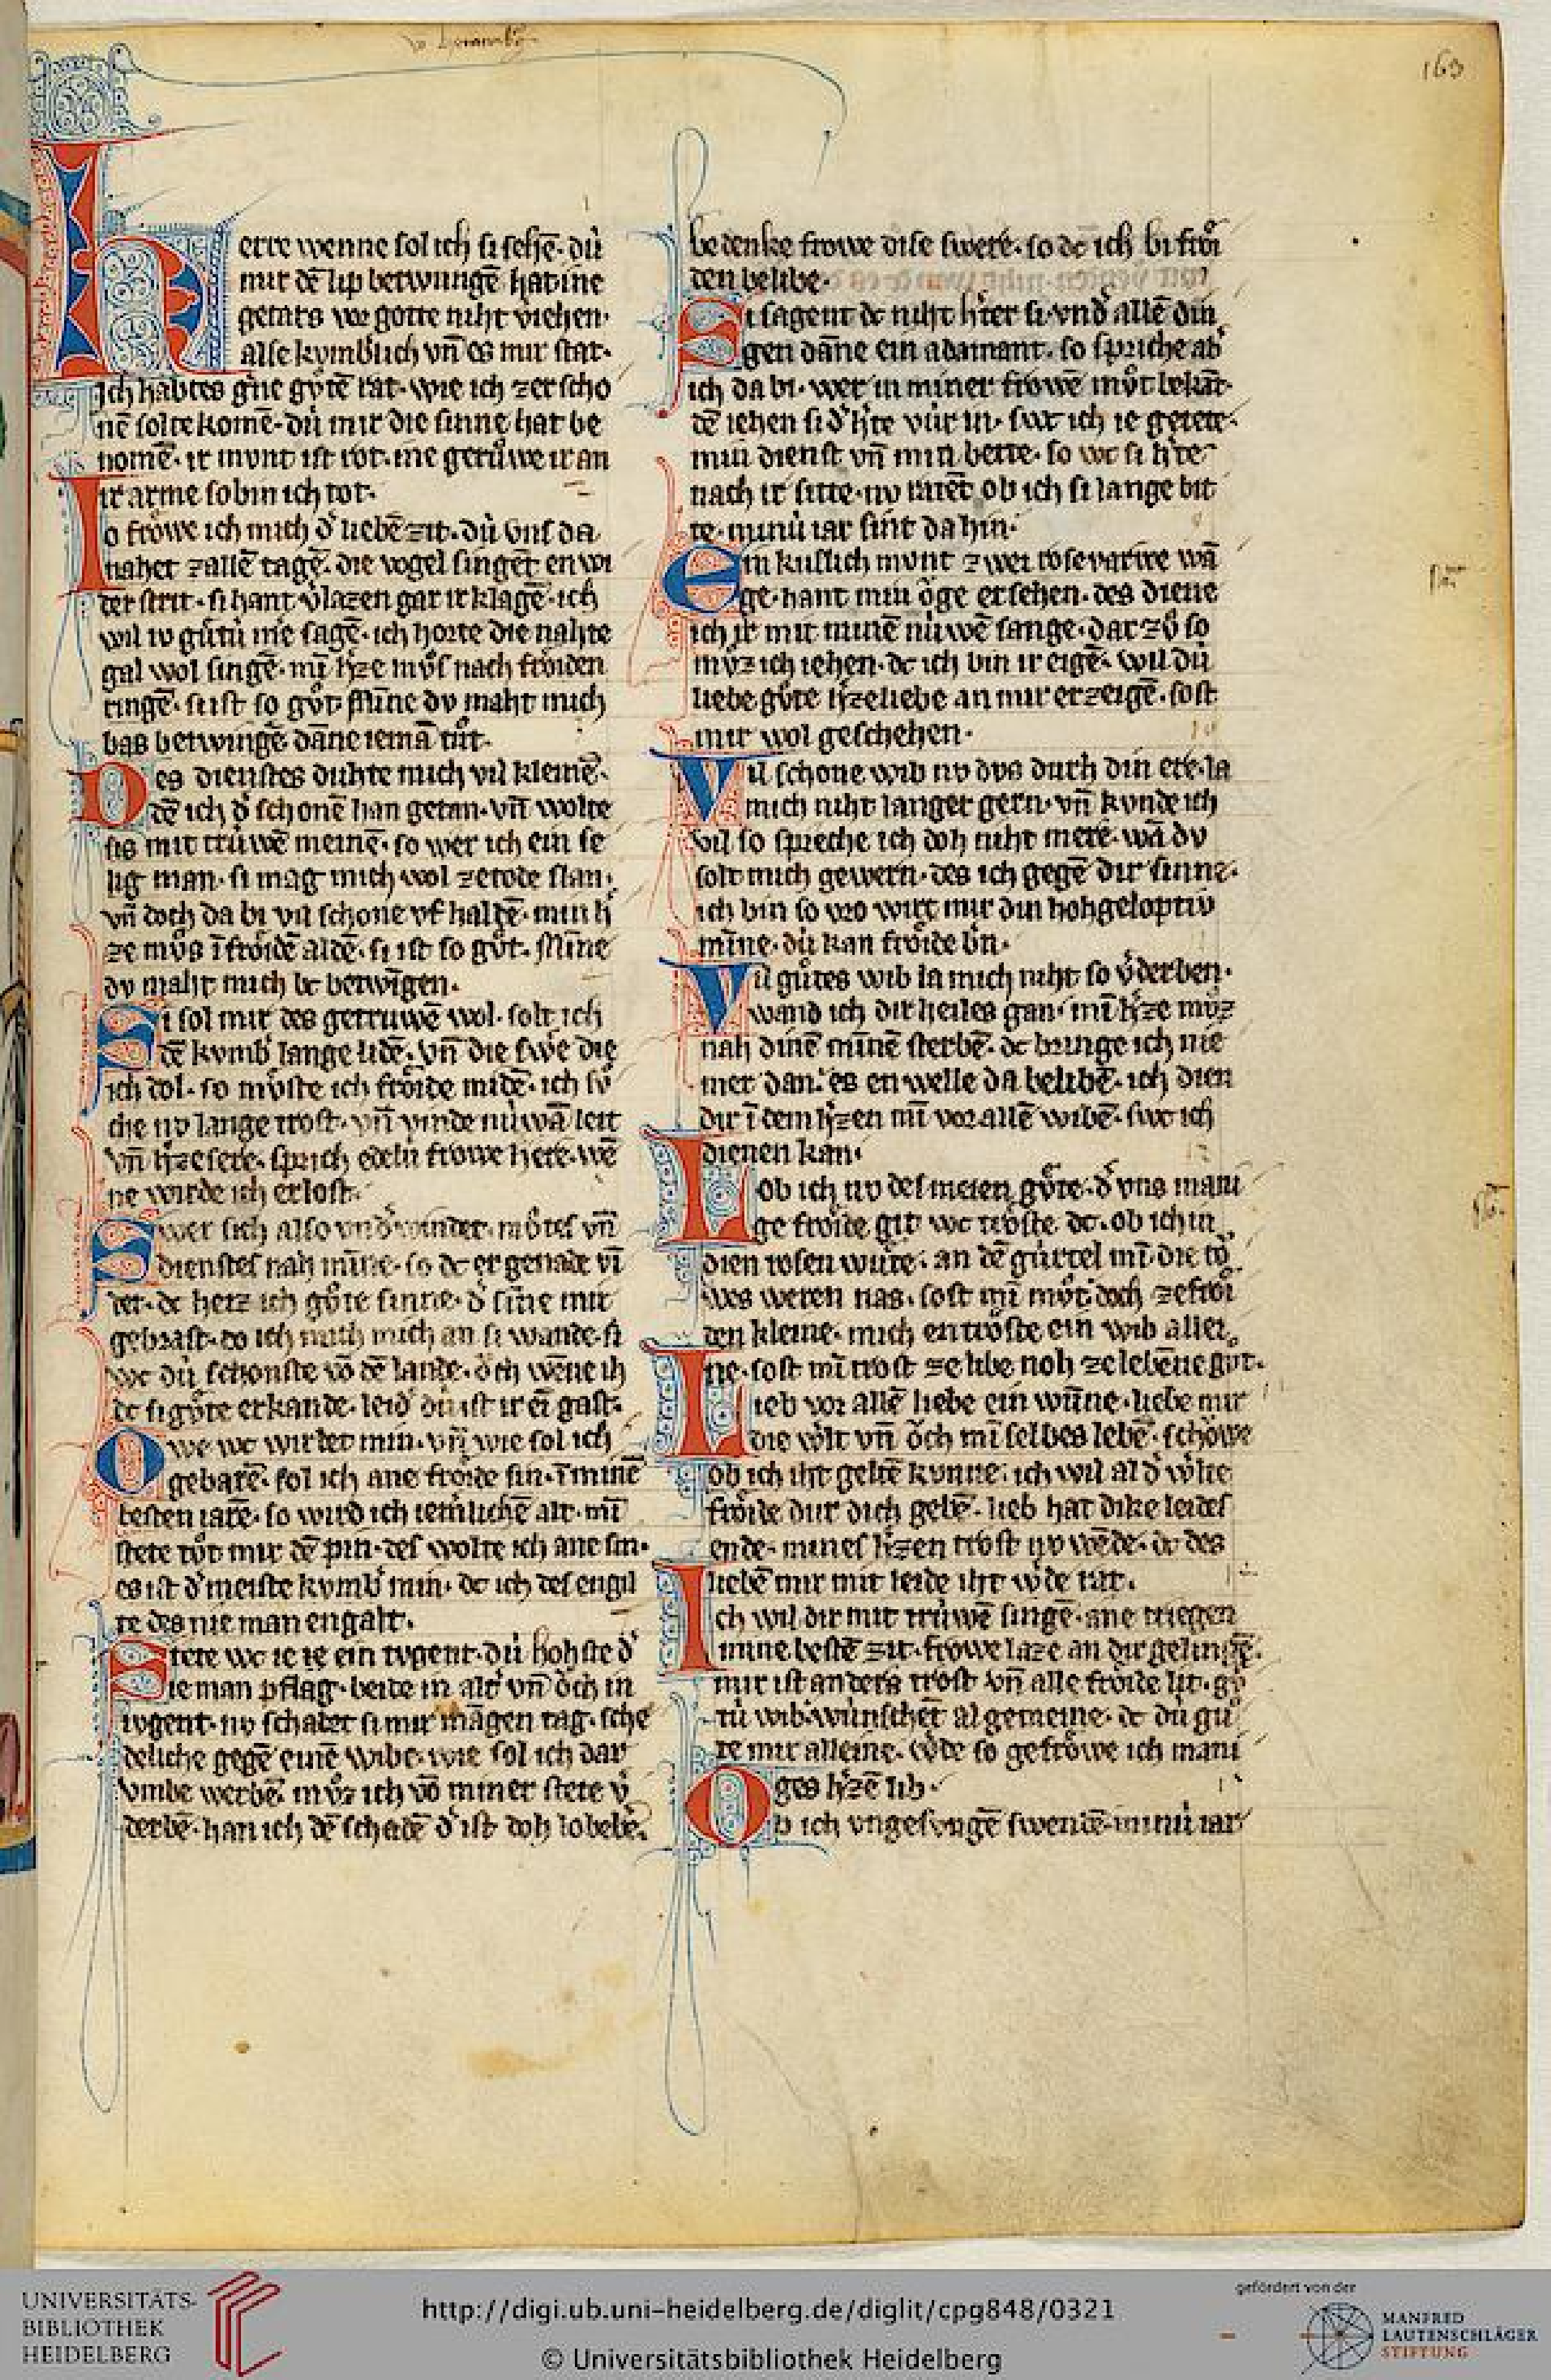 163
Herre wenne sol ich si sehē· dú
mir dē lip betwungē hat ine
getars vor gotte niht viehen·
alse kvmb̾lich vn̄ es mir stat·
ich hab tes gˀne gv̊tē rat· wie ich zer scho
nē solte komē· dú mir die sinne hat be
nomē· ir mvnt ist rot· ine gerůwe ir an
ir arme so bin ich tot·
Io frǒwe ich mich dˀ liebē zit· dú vns da
nahet zallē tagē· die vogel singēt en wi
der strit· si hant vˀlazen gar ir klagē· ich
wil iv gůtú me sagē· ich horte die nahte
gal wol singē· mī hˀze mv̊s nach frǒiden
ringē· si ist so gv̊t· Min̄e dv maht mich
bas betwingē dāne iemā tůt·
Des dienstes duhte mich vil kleine·
dē ich dˀ schonē han getan· vn̄ wolte
sis mit trúwē meinē· so wer ich ein se
lig man· si mag mich wol ze tode slan·
vn̄ doch da bi vil schone vf haltē· min h
ze mv̊s ī frǒidē aldē· si ist so gv̊t· Min̄e
dv maht mich bc betwīgen·
Si sol mir des getruwē wol· solt ich
dē kvmbˀ lange lidē· vn̄ die swˀe die
ich dol· so mv̊ste ich frǒide midē· ich sv̊
che nv lange trost· vn̄ vinde núwā leit
vn̄ hˀze sere· sprich edelú frowe here· wē
ne wirde ich erlost·
Swer sich also vndˀwindet· mv̊tes vn̄
dienstes nah min̄e· so dc er genade vī
det· dc herz ich gv̊te sinne· dˀ sin̄e mir
gebrast· do ich mich mich an si wande· si
wc dú schonste vō dē lande· ǒch wēne ih
dc si gv̊te erkande· leidˀ dú ist ir eī gast·
Owe wc wirdet min· vn̄ wie sol ich
gebarē· sol ich ane frǒide sin· ī minē
besten iarē· so wird ich iemˀlichē alt· mī
stete tv̊t mir dē pin· des wolte ich ane sin·
es ist dˀ meiste kvmbˀ min· dc ich des engil
te des nie man engalt·
Stete wc ie ie ein tvgent· dú hohste dˀ
ie man pflag· beide in altˀ vn̄ ǒch in
ivgent· nv schadet si mir māgen tag· sche
deliche gegē einē wibe· wie sol ich dar
vmbe werbē· mv̊z ich vō miner stete vˀ
derbē· han ich dē schadē dˀ ist doh lobebˀe·
bedenke frowe dise swere· so dc ich bi frǒi
den belibe·
Si sagent dc niht hˀter si· vndˀ allē din
gen dāne ein adamant· so spriche abˀ
ich da bi· wer in miner frowē mv̊t bekāt·
dē iehen si dˀ hˀte vúr in· swc ich ie getete·
min dienst vn̄ min bette· so wc si hˀte
nach ir sitte· nv ratēt ob ich si lange bit
te· minú iar sint da hin·
Ein kuslich mvnt zwei rosevarwe wā
ge· hant min ǒge ersehen· des diene
ich ir mit minē núwē sange· dar zv̊ so
mv̊z ich iehen· dc ich bin ir eigē· wil dú
liebe gv̊te hˀzeliebe an mir erzeigē· sost
mir wol geschehen·
Vil schone wib nv dvs durh din ere· la
mich niht langer gern· vn̄ kvnde ich
vil so spreche ich doh niht mere· wā dv
solt mich gewern· des ich gegē dir sinne·
ich bin so vro wirt mir din hohgeloptiv
min̄e· dú kan frǒide bˀn·
Vil gůtes wib la mich niht so vˀderben·
wand ich dir heiles gan· mī hˀze mv̊z
nah dinē min̄en sterbē· dc bringe ich nie
mer dan· es en welle da belibē· ich dien
dir ī dem hˀzen mī vor allē wibē· swc ich
dienen kan·
Lob ich nv des meien gv̊te· dˀ vns mani
ge frǒide git wc trǒste dc· ob ich in
dien rosen wůte· an dē gúrtel mī· die tǒ
wes weren nas· sost mī mv̊t doch ze frǒi
den kleine· mich entrǒste ein wib allei
ne· sost mī trost ze libe noh ze lebēne gvt·
Lieb vor allē liebe ein wun̄e· liebe mir
die wˀlt vn̄ ǒch mī selbes lebē· schǒwe
ob ich iht geltē kvnne· ich wil al dˀ wˀlte
frǒide dur dich gebē· lieb hat dike leides
ende· mines hˀzen trost nv wēde· dc des
liebē mir mit leide iht wˀde rat·
Ich wil dir mit trúwē singē· ane triegen
mine bestē zit· frowe laze an dir gelingē·
mir ist anders trost vn̄ alle frǒide lit· gv̊
tú wib wúnschēt al gemeine· dc dú gů
te mir alleine· wˀde so gefrǒwe ich mani
ges hˀzē lib·
Ob ich vngesvngē swendē minú iar
UNIVERSITÄTS-
BIBLIOTHEK
HEIDELBERG
http://digi.ub.uni-heidelberg.de/diglit/cpg848/0321
© Universitätsbibliothek Heidelberg
gefördert von der
MANFRED
LAUTENSCHLÄGER
STIFTUNG